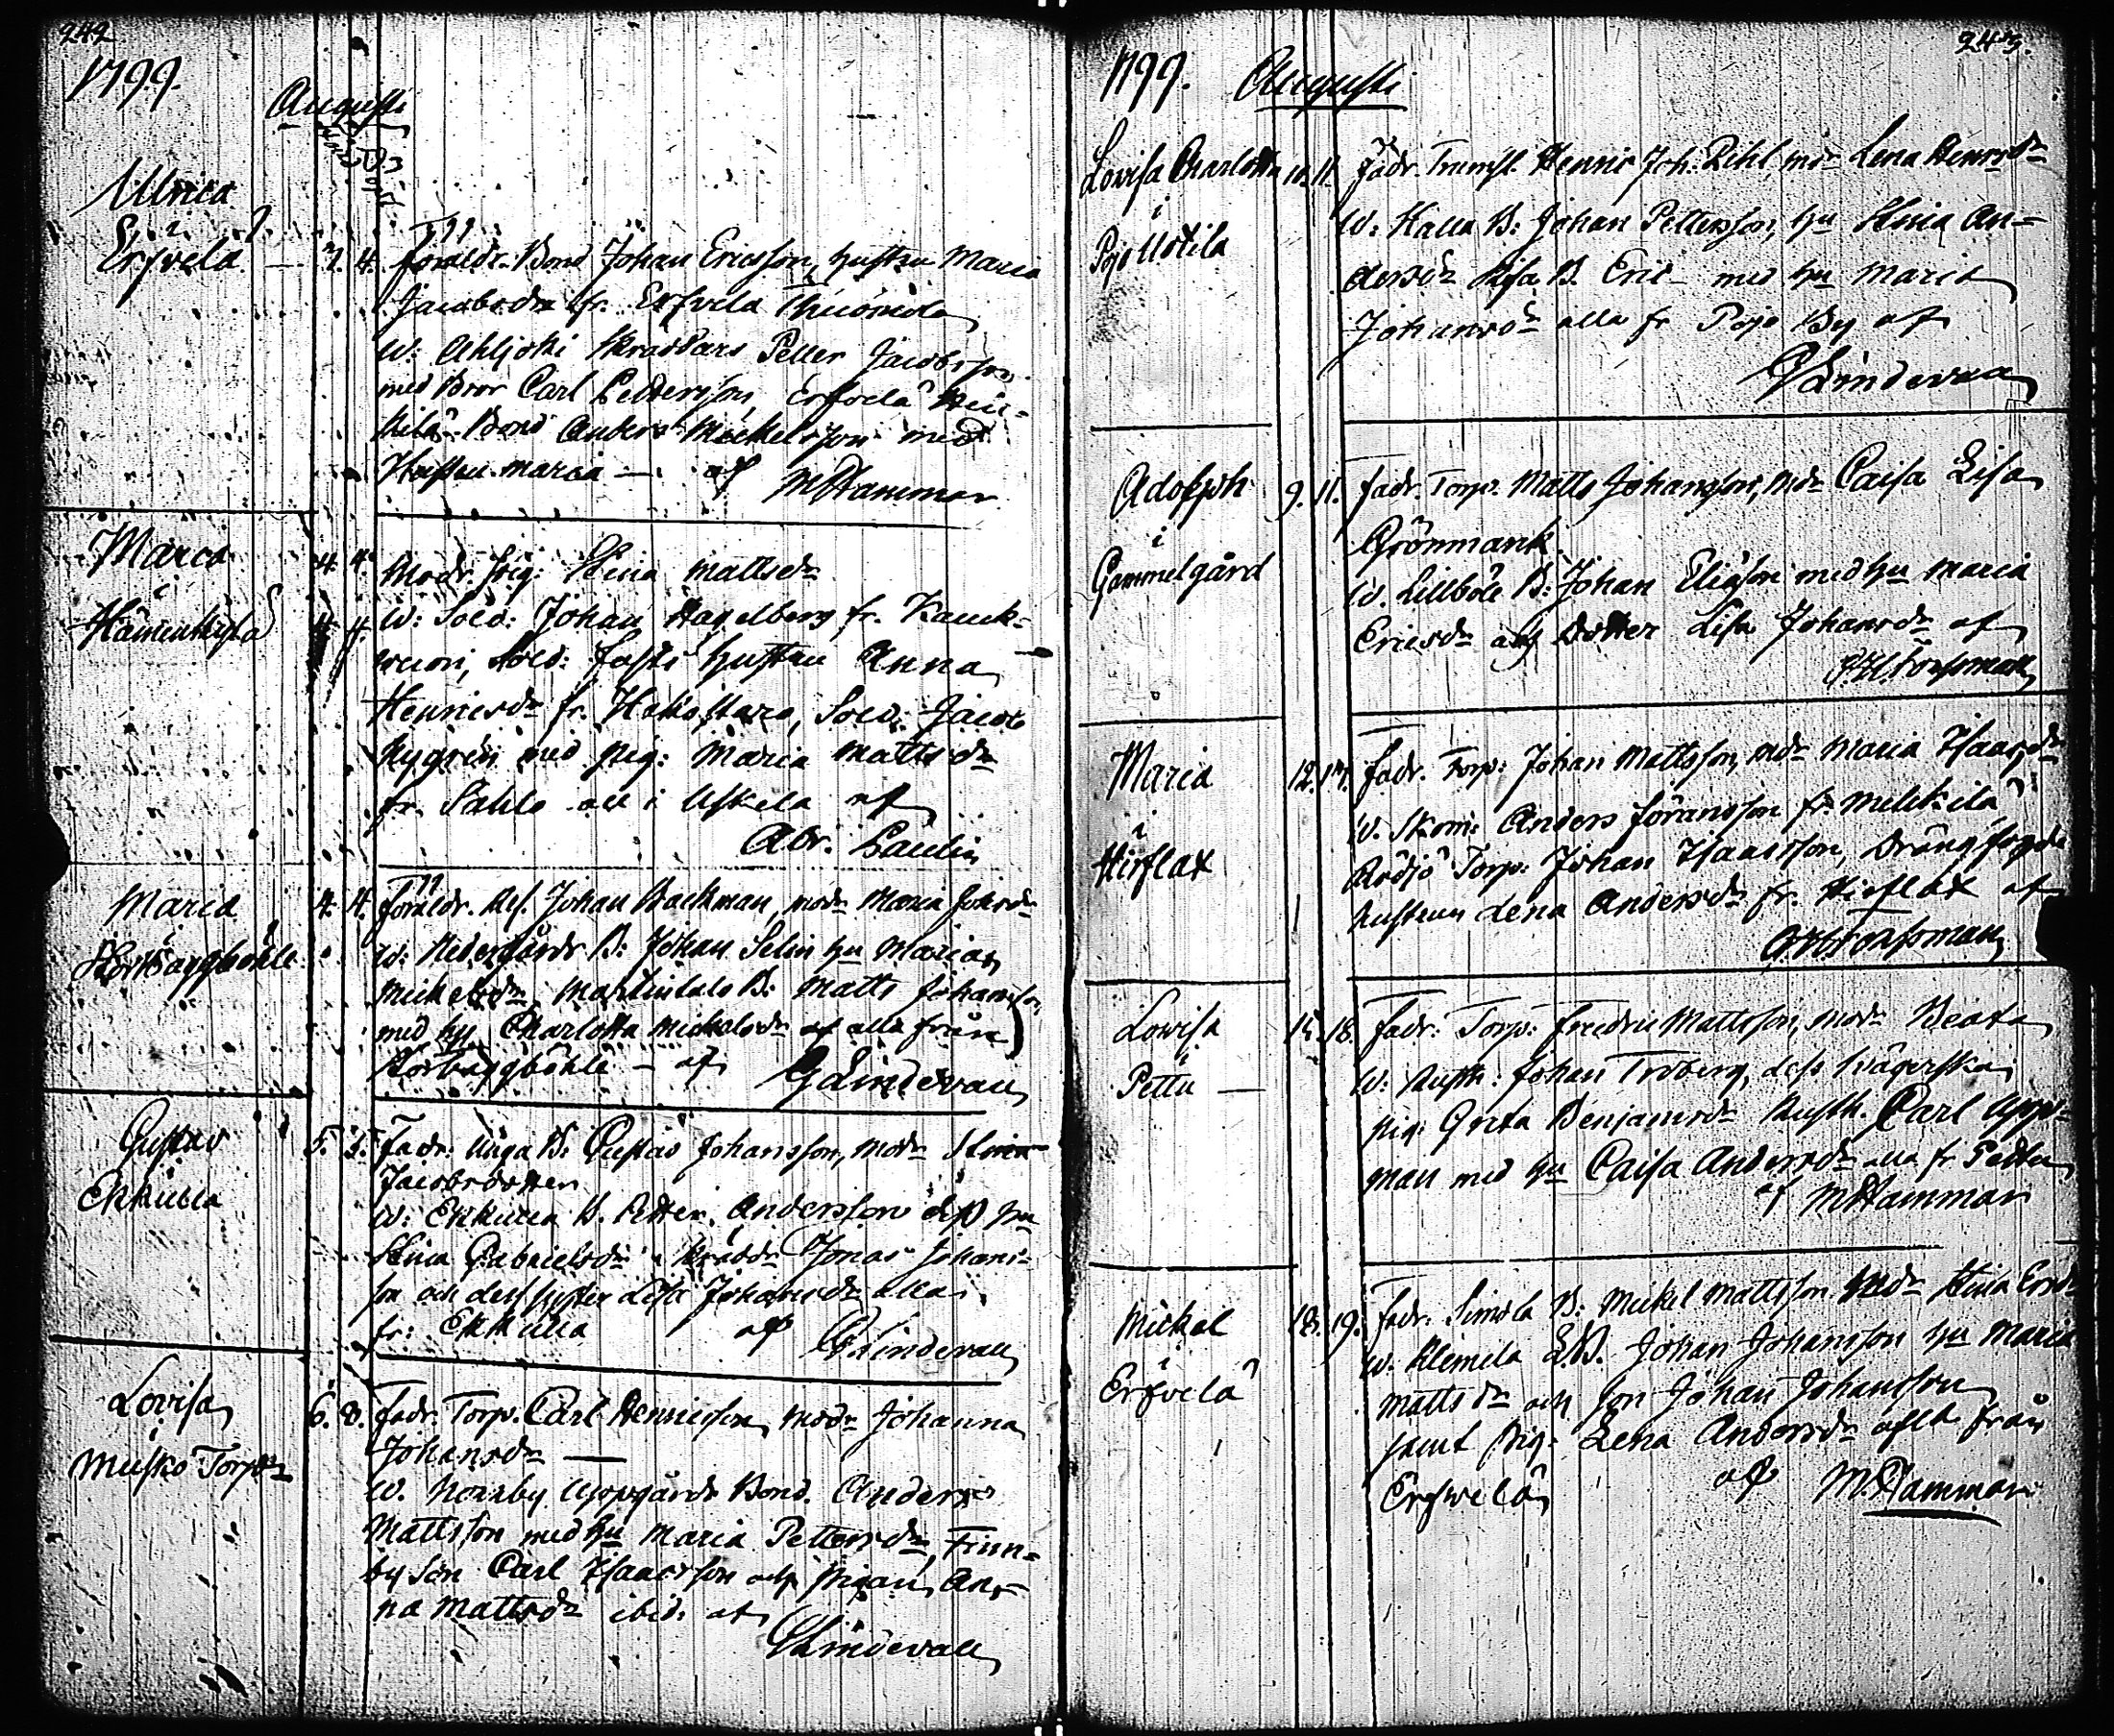 242
1799.
Augusti
Ulrica
i
Erfvelä
3. 4. Föräldr. Bond Johan Ericsson, hustru Maria
Jacobsdr fr. Erfvelä
W: Skräddare Petter Jacobsson
med Bror Carl Pettersson, Erfvelä Hei-
kilä Bond Anders Mickelsson med
Hustru Maria — af MHammar
Maria
i
4. 4. Modr. pig: Stina Mattsdr
W: Sold: Johan Hagelberg fr. Kauck-
wuori, Sold: hustru Anna
Henricsdr fr. Sold: Jacob
Nygrén med pig: Maria Mattsdr
fr. Sahlo all i Uskela af
Abr. Paulin
Maria
i
Storbaggböhle
4. 4. Föräldr. Johan Backman, modr Maria Johsdr
W: Nedergårds B: Johan Selin hu Maria
Mickelsdr, Martindals B: Matts Johansson
med hu Charlotta Mickelsdr alla från
Storbaggböhle — af GLindevall
Gustav
Ekkulla
5. 5. Fadr. B: Gustav Johansson, modr Stina
Jacobsdotter
W: Ekkulla B. Petter Andersson dess hu
Stina Gabrielsdr Jonas Johans-
son och dess syster Lisa Johansdr alla
fr: Ekkulla af GLindevall
Lovisa
i
Musko Torp
6. 8. Fadr. Torp. Carl Henricsson, modr Johanna
Johansdr —
W. Norrby Uppgårds Bond. Anders
Mattsson med hu Maria Pettersdr, Finn-
by Son Carl Isaacsson och pigan An-
na Mattsdr ibid: af
GLindevall
243.
1799. Augusti
Lovisa Charlotta
i
Pojo
10. 11. Fadr. Henric Joh: modr Lena Henricsdr
W: Halla B: Johan Pettersson, hu Stina An-
dersdr B. Eric med hu Maria
Johansdr alla fr Pojo By af
GLindevall
Adolph
i
Gammelgård
9. 11. Fadr. Torp. Matts Johansson, Modr Caisa Lisa
Grönmark
W. Lillböle B: Johan Eliasson med hu Maria
Ericsdr och Dotter Lisa Johansdr af
Forssman
Maria
i
Hirflax
12. 14. Fadr. Torp: Johan Mattsson, modr Maria Isaacsdr
W. Skom: Anders Göransson fr. Melckilä
Rödjö Torp: Johan Isaacsson, Drängfogde
hustrun Lena Andersdr fr. Hirflax af
Forssman
Lovisa
i
Pettu —
15. 18. Fadr: Torp: Fredric Mattsson, modr Beata
W: Rusth: Johan Troberg, dess Svägerska
pig: Greta Benjamsdr Rusth. Carl Upp-
man med hu Caisa Andersdr alla fr. Pettu
af MHammar
Mickel
i
Erfvelä
18. 19. Fadr. Simola B: Mickel Mattsson Modr Stina Ersdr
W. Klemelä Johan Johansson hu Maria
Mattsdr och Son Johan Johansson
samt Pig: Lena Andersdr alla från
Erfwelä af M.Hammar